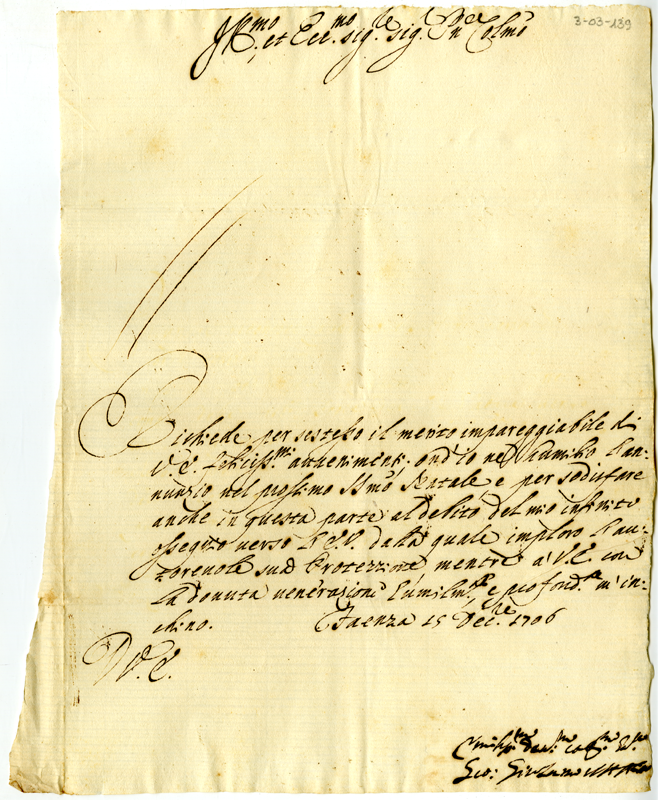 3-03-139
Ill.mo et Ecc.mo sig.re sig.r P.n Col.mo
Richiede per se stesso il merito impareggiabile di
V. E. feliciss.mi avvenimenti; ond'io ne l'humilio l'an-
nunzio nel prossimo SSmo Natale, e per sodisfare
anche in questa parte al debito del mio infinito
ossequio verso l'E.V. dalla quale imploro l'au-
torevole sua Protezzione mentre a' V.E. con
la dovuta venerazione humilm.te, e profond.te m'in-
chino. Faenza 15 Dec.re 1706
D V. E.
Gio: Girolamo